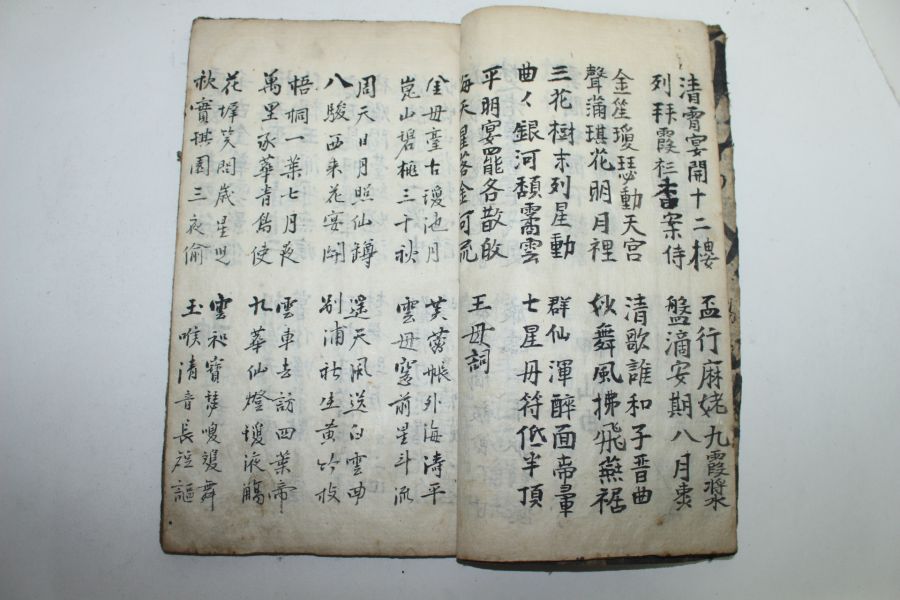 清霄宴開十二樓
列拜霞衫香案侍
盃行麻姥九霞漿
盤滴安期八月棗
金笙瓊瑟動天宮
聲滿琪花明月裡
清歌誰和子晉曲
舞風拂飛燕裾
三花樹末列星動
曲々銀河頹雲
群仙渾醉面帝暈
七星丹符低半頂
平明宴罷各散
海天星落金河流
王母詞
金母臺古瓊池月
崑山碧桃三千秋
芙蓉帳外海濤平
雲母窓前星斗流
周天日月照仙罇
八駿西来花宴開
遥天風送白雲曲
別浦社生黄竹枝
梧桐一葉七月夜
萬里承華青鳥使
雲車去訪四葉帝
九華仙燈瓊液觴
花墀笑問歲星児
秋實琪園三夜偷
雲和寶瑟舞
玉喉清音長短謳